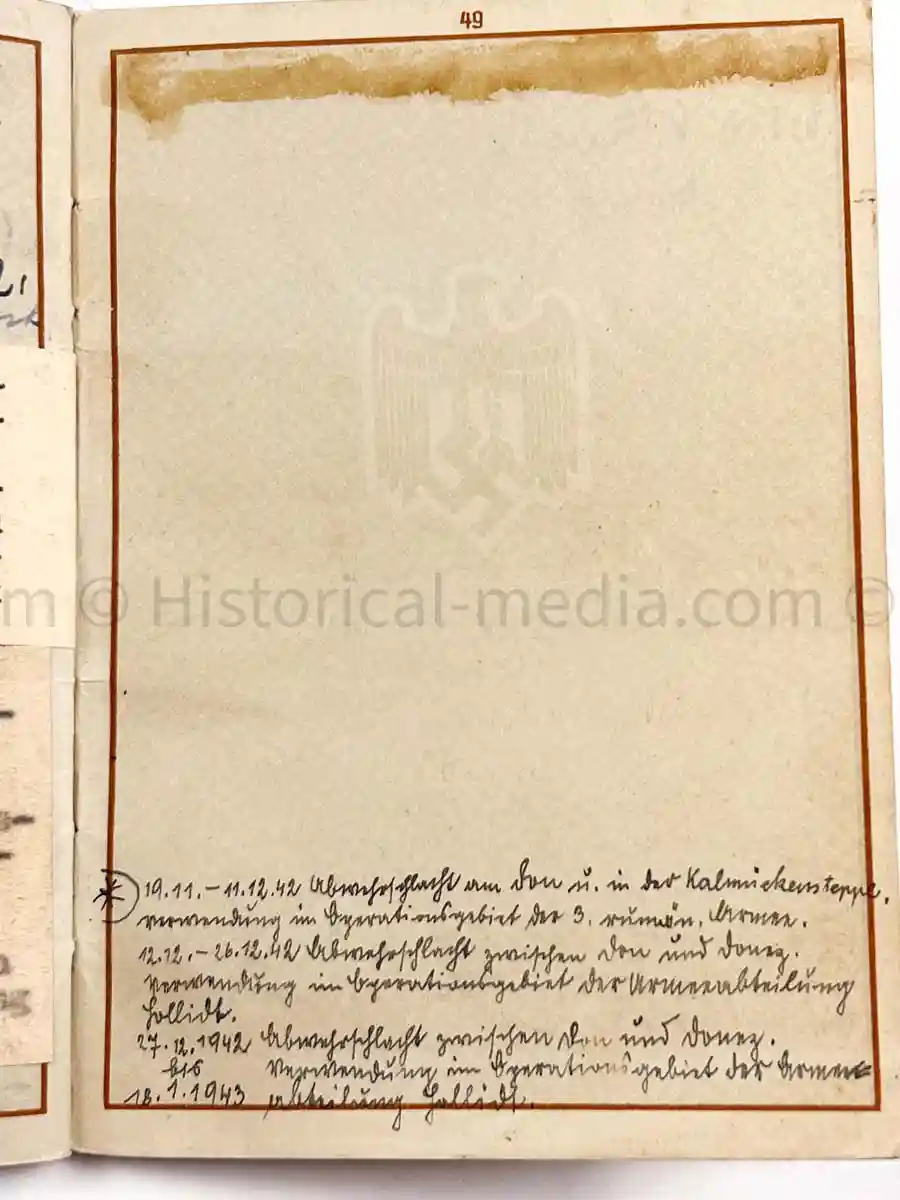 49
m © Historical-media.com ©
19.11.-11.12.42 Abwehrschlacht am Don u. in der Kalmückensteppe.
Verwendung im Operationsgebiet der 3. rumän. Armee.
12.12.-26.12.42 Abwehrschlacht zwischen Don und Donez.
Verwendung im Operationsgebiet der Armeeabteilung
Hollidt.
27.12.1942 Abwehrschlacht zwischen Don und Donez.
bis Verwendung im Operationsgebiet der Armee-
18.1.1943 abteilung Hollidt.